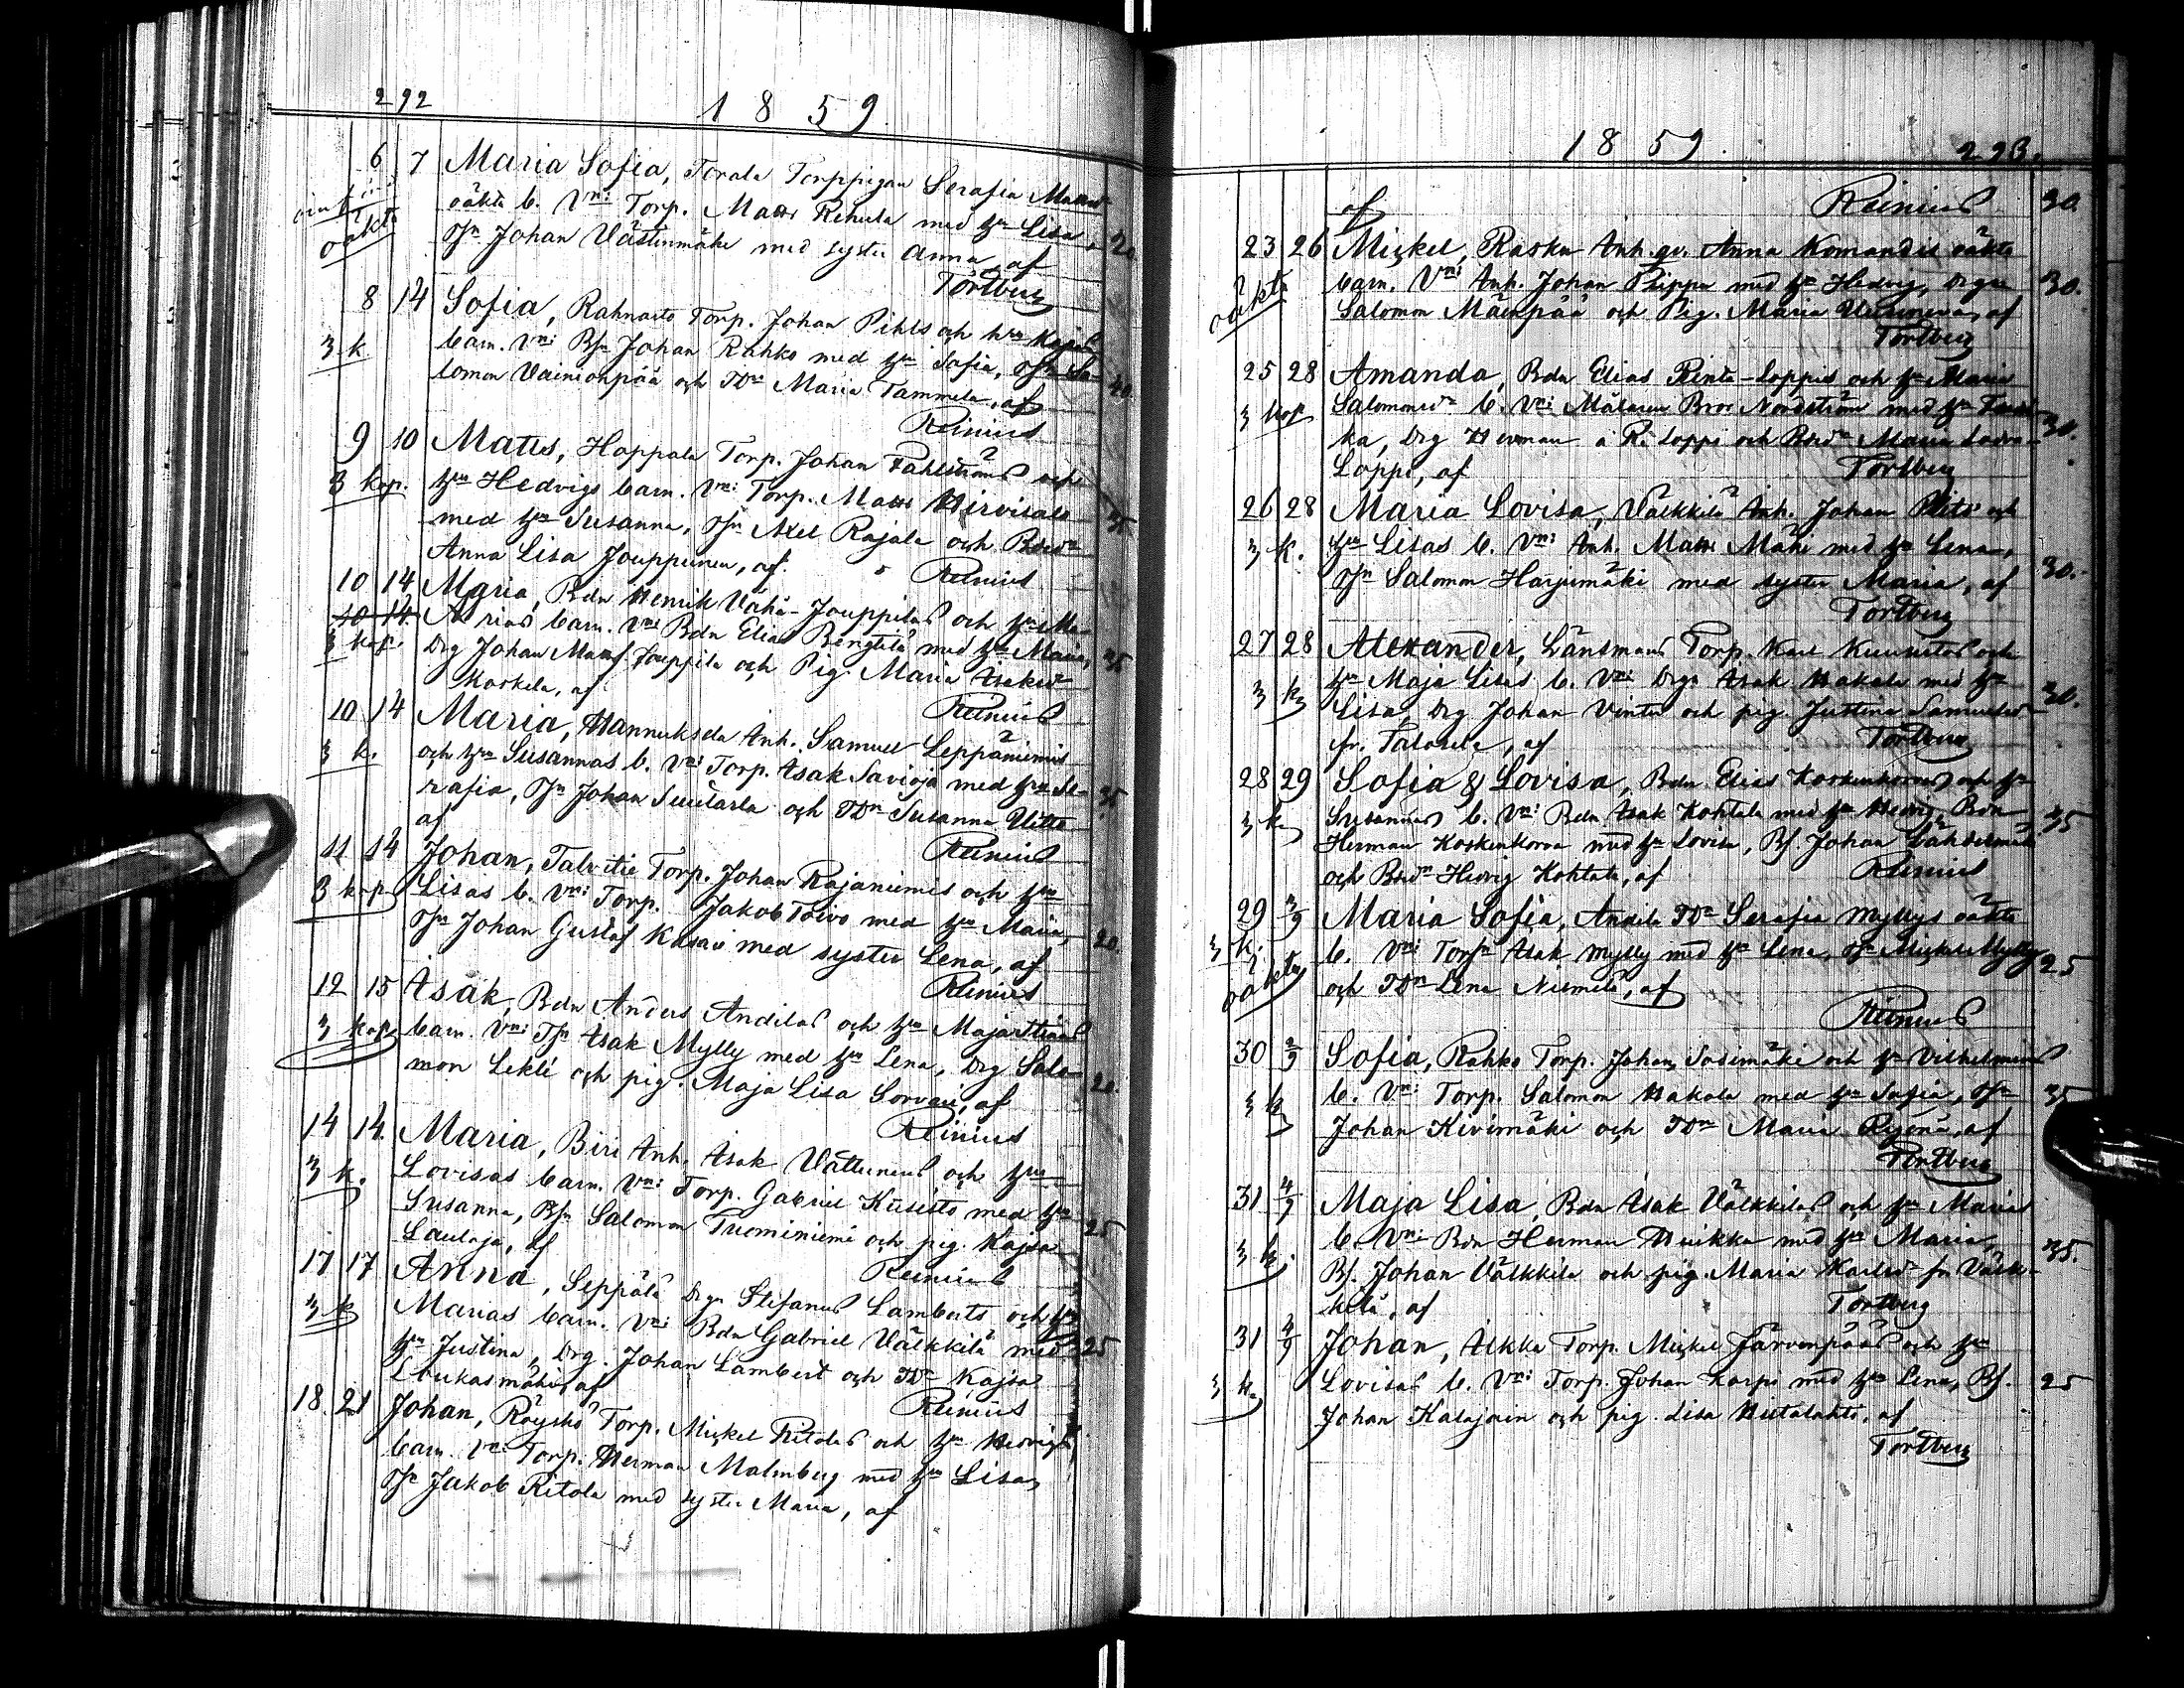 292
1859
6 7 Maria Sofia, Torala Torppigan Serafia Matts
oäkta b. Vn: Torp. Matts Rehula med hu Lisa,
oäkta
Gn Johan Västinmäki med syster Anna, af 20.
Tortberg
8 14 Sofia, Rahnasto Torp. Johan Pihls och hus Kajsas
3 k barn. Vn: Bn Johan Rahko med hu Sofia, Gn Sa-
lomon Vainionpää och TDr Maria Tammela, af 40.
Reinius
9 10 Matts, Hoppala Torp. Johan Fahlströms och
3 kop. hus Hedvigs barn. Vn: Torp. Matts Hirvisalo
med hu Susanna, Gn Axel Rajala och Bdr 35
Anna Lisa Jouppinen, af Reinius
10 14 Maria, Bdn Henrik Vähä-Jouppilas och hus Ma-
10 14 rias barn. Vn: Bdn Elias Bengtilä med hu Maria,
3 kop. Drg Johan Matts Jouppila och Pig. Maria Isaksdr 35
Koskela, af
Reinius
10 14 Maria, Mannuksela Inh. Samuel Leppäniemis
3 k. och hus Susannas b. Vn: Torp. Isak Savioja med hu Se-
rafia, Gn Johan Suutarla och TDr Susanna Uitto 35
af
Reinius
11 14 Johan, Talvitie Torp. Johan Rajaniemis och hus
3 kop Lisas b. Vn: Torp. Jakob Toivo med hu Maria,
Gn Johan Gustaf Kasari med syster Lena, af 20.
Reinius
12 15 Isak, Bdn Anders Andilas och hus Maja Stinas
3 kop barn. Vn: TGn Isak Mylly med hu Lena, Drg Salo-
mon Lekli och pig. Maja Lisa Lorvari, af 20.
Reinius
14 14. Maria, Biri Inh. Isak Vättunens och hus
3 k. Lovisas barn. Vn: Torp. Gabriel Kusisto med hu
Susanna, BGn Salomon Tuominiemi och pig. Kajsa 25
Laulaja, af
Reinius
17 17 Anna, Seppälä Drgn Stefanus Lamberts och hus
3 k Marias barn. Vn: Bdn Gabriel Välkkilä med
hu Justina, Drg. Johan Lambert och TDr Kajsa 25
Loukasmäki, af
Reinius
18. 21 Johan, Röyskö Torp. Mickel Ritolas och hus Hedvigs
barn. Vn: Torp. Herman Malmberg med hu Lisa,
Gn Jakob Ritola med syster Maria, af
1859. 293.
af Reinius 30.
23 26 Mickel, Rasku Inh. qv. Anna Komandis oäkta
oäkta barn. Vn: Inh. Johan Piippu med hu Hedvig, Drgn 30.
Salomon Mäenpää och Pig. Maria Uusineva, af
Tortberg
25 28 Amanda, Bdn Elias Rinta-Loppis och hus Maria
3 kop Salomonsdr b. Vn: Målaren Bror Nordström med hu
ka, Drg Herman å R. Loppi och Bdr Maria 30.
Loppi, af Tortberg
26 28 Maria Lovisa, Välkkilä Inh. Johan Pitts och
3 k. hus Lisas b. Vn: Inh. Matts Mäki med hu Lena,
Gn Salomon Harjumäki med syster Maria, af 30.
Tortberg
27 28 Alexander, Länsmans Torp. Karl Kuusistos och
3 k hus Maja Lisas b. Vn: Drgn Isak Hakala med hu
Lisa, Drg Johan Vinter och pig. Justina Samuelsdr 30.
fr. Talosela, af Tortberg
28 29 Sofia & Lovisa, Bdn Elias Koskenkorvas och hus
3 k Susannas b. Vn: Bdn Isak Kohtala med hu Hedvig, Bdn 35
Herman Koskenkorva med hu Lovisa, BS. Johan Lähdesmäki
och Bdr Hedvig Kohtala, af Reinius
29 2/9 Maria Sofia, Andila TDr Serafia Myllys oäkta
3 k. b. Vn: Torpn Isak Mylly med hu Lena, Gn Mickel Mylly 25
oäkta och TDr Lena Niemelä, af
Reinius
30 2/9 Sofia, Rahko Torp. Johan Sodimäki och hus Vilhelminas
3 k b. Vn: Torp. Salomon Hakola med hu Sofia, Gn 35
Johan Kivimäki och TDr Maria Pyörnä, af
Tortberg
31 4/9 Maja Lisa, Bdn Isak Välkkiläs och hus Marias
3 k. b. Vn: Bdn Herman Huikku med hu Maria,
BS. Johan Välkkilä och pig. Maria Karlsdr fr. Välk- 35.
kilä, af Tortberg
31 4/9 Johan, Ilkka Torp. Mickel Järvenpääs och hus
3 k. Lovisas b. Vn: Torp. Johan Karpi med hu Lena, BS. 25
Johan Kalajain och pig. Lisa Hietalahti, af
Tortberg